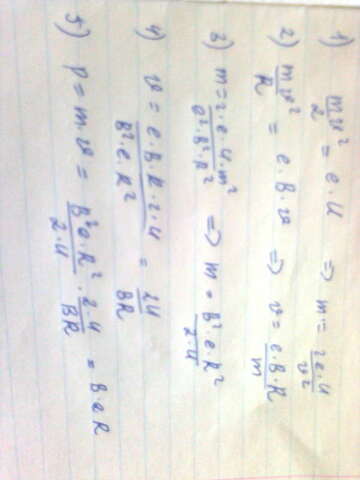 1) mv²/2 = e.u ⇒ m = 2e.u/v²
2) mv²/R = e.B.v ⇒ v = e.B.R/m
3) m = 2.e.u.m²/e².B².R² ⇒ m = B².e.R²/2.u
4) v = e.B.R.2.u/B².e.R² = 2u/BR
5) p = m.v = B².e.R²/2.u . 2.u/BR = B.e.R